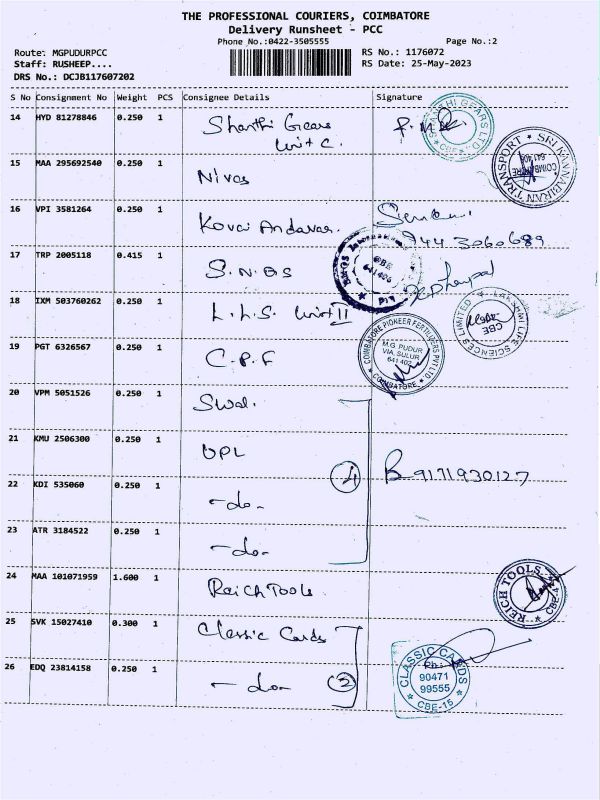 THE PROFESSIONAL COURIERS, COIMBATORE
Delivery Runsheet - PCC
Phone No.:0422-3505555 Page No.:2
Route: MGPUDURPCC RS No.: 1176072
Staff: RUSHEEP.... RS Date: 25-May-2023
DRS No.: DCJB117607202
S No Consignment No Weight PCS Consignee Details Signature
14 HYD 81278846 0.250 1 Shanthi Gears
Unit C.
SHANTHI GEARS LTD. CBE
15 MAA 295692540 0.250 1 Nivas
SRI KANNABIRAN TRANSPORT COIMBATORE 641406
16 VPI 3581264 0.250 1 Kovai Andavar.
944 3060689
17 TRP 2005118 0.415 1 S.N.Q.S
CBE
641406
18 IXM 503760262 0.250 1 L.L.S. Unit II
LAKSHMI LIFE SCIENCES LIMITED CBE
19 PGT 6326567 0.250 1 C.P.F
COIMBATORE PIONEER FERTILIZERS PVT LTD
M.G. PUDUR
VIA. SULUR
641 402
COIMBATORE
20 VPM 5051526 0.250 1 SWal.
21 KMU 2506300 0.250 1 UPL
4 9171930127
22 KDI 535060 0.250 1 -do-
23 ATR 3184522 0.250 1 -do-
24 MAA 101071959 1.600 1 Reich Tools.
REICH TOOLS CBE-4
25 SVK 15027410 0.300 1 Classic Cards
26 EDQ 23814158 0.250 1 -do- 2
CLASSIC CARDS
Ph:
90471
99555
CBE-15